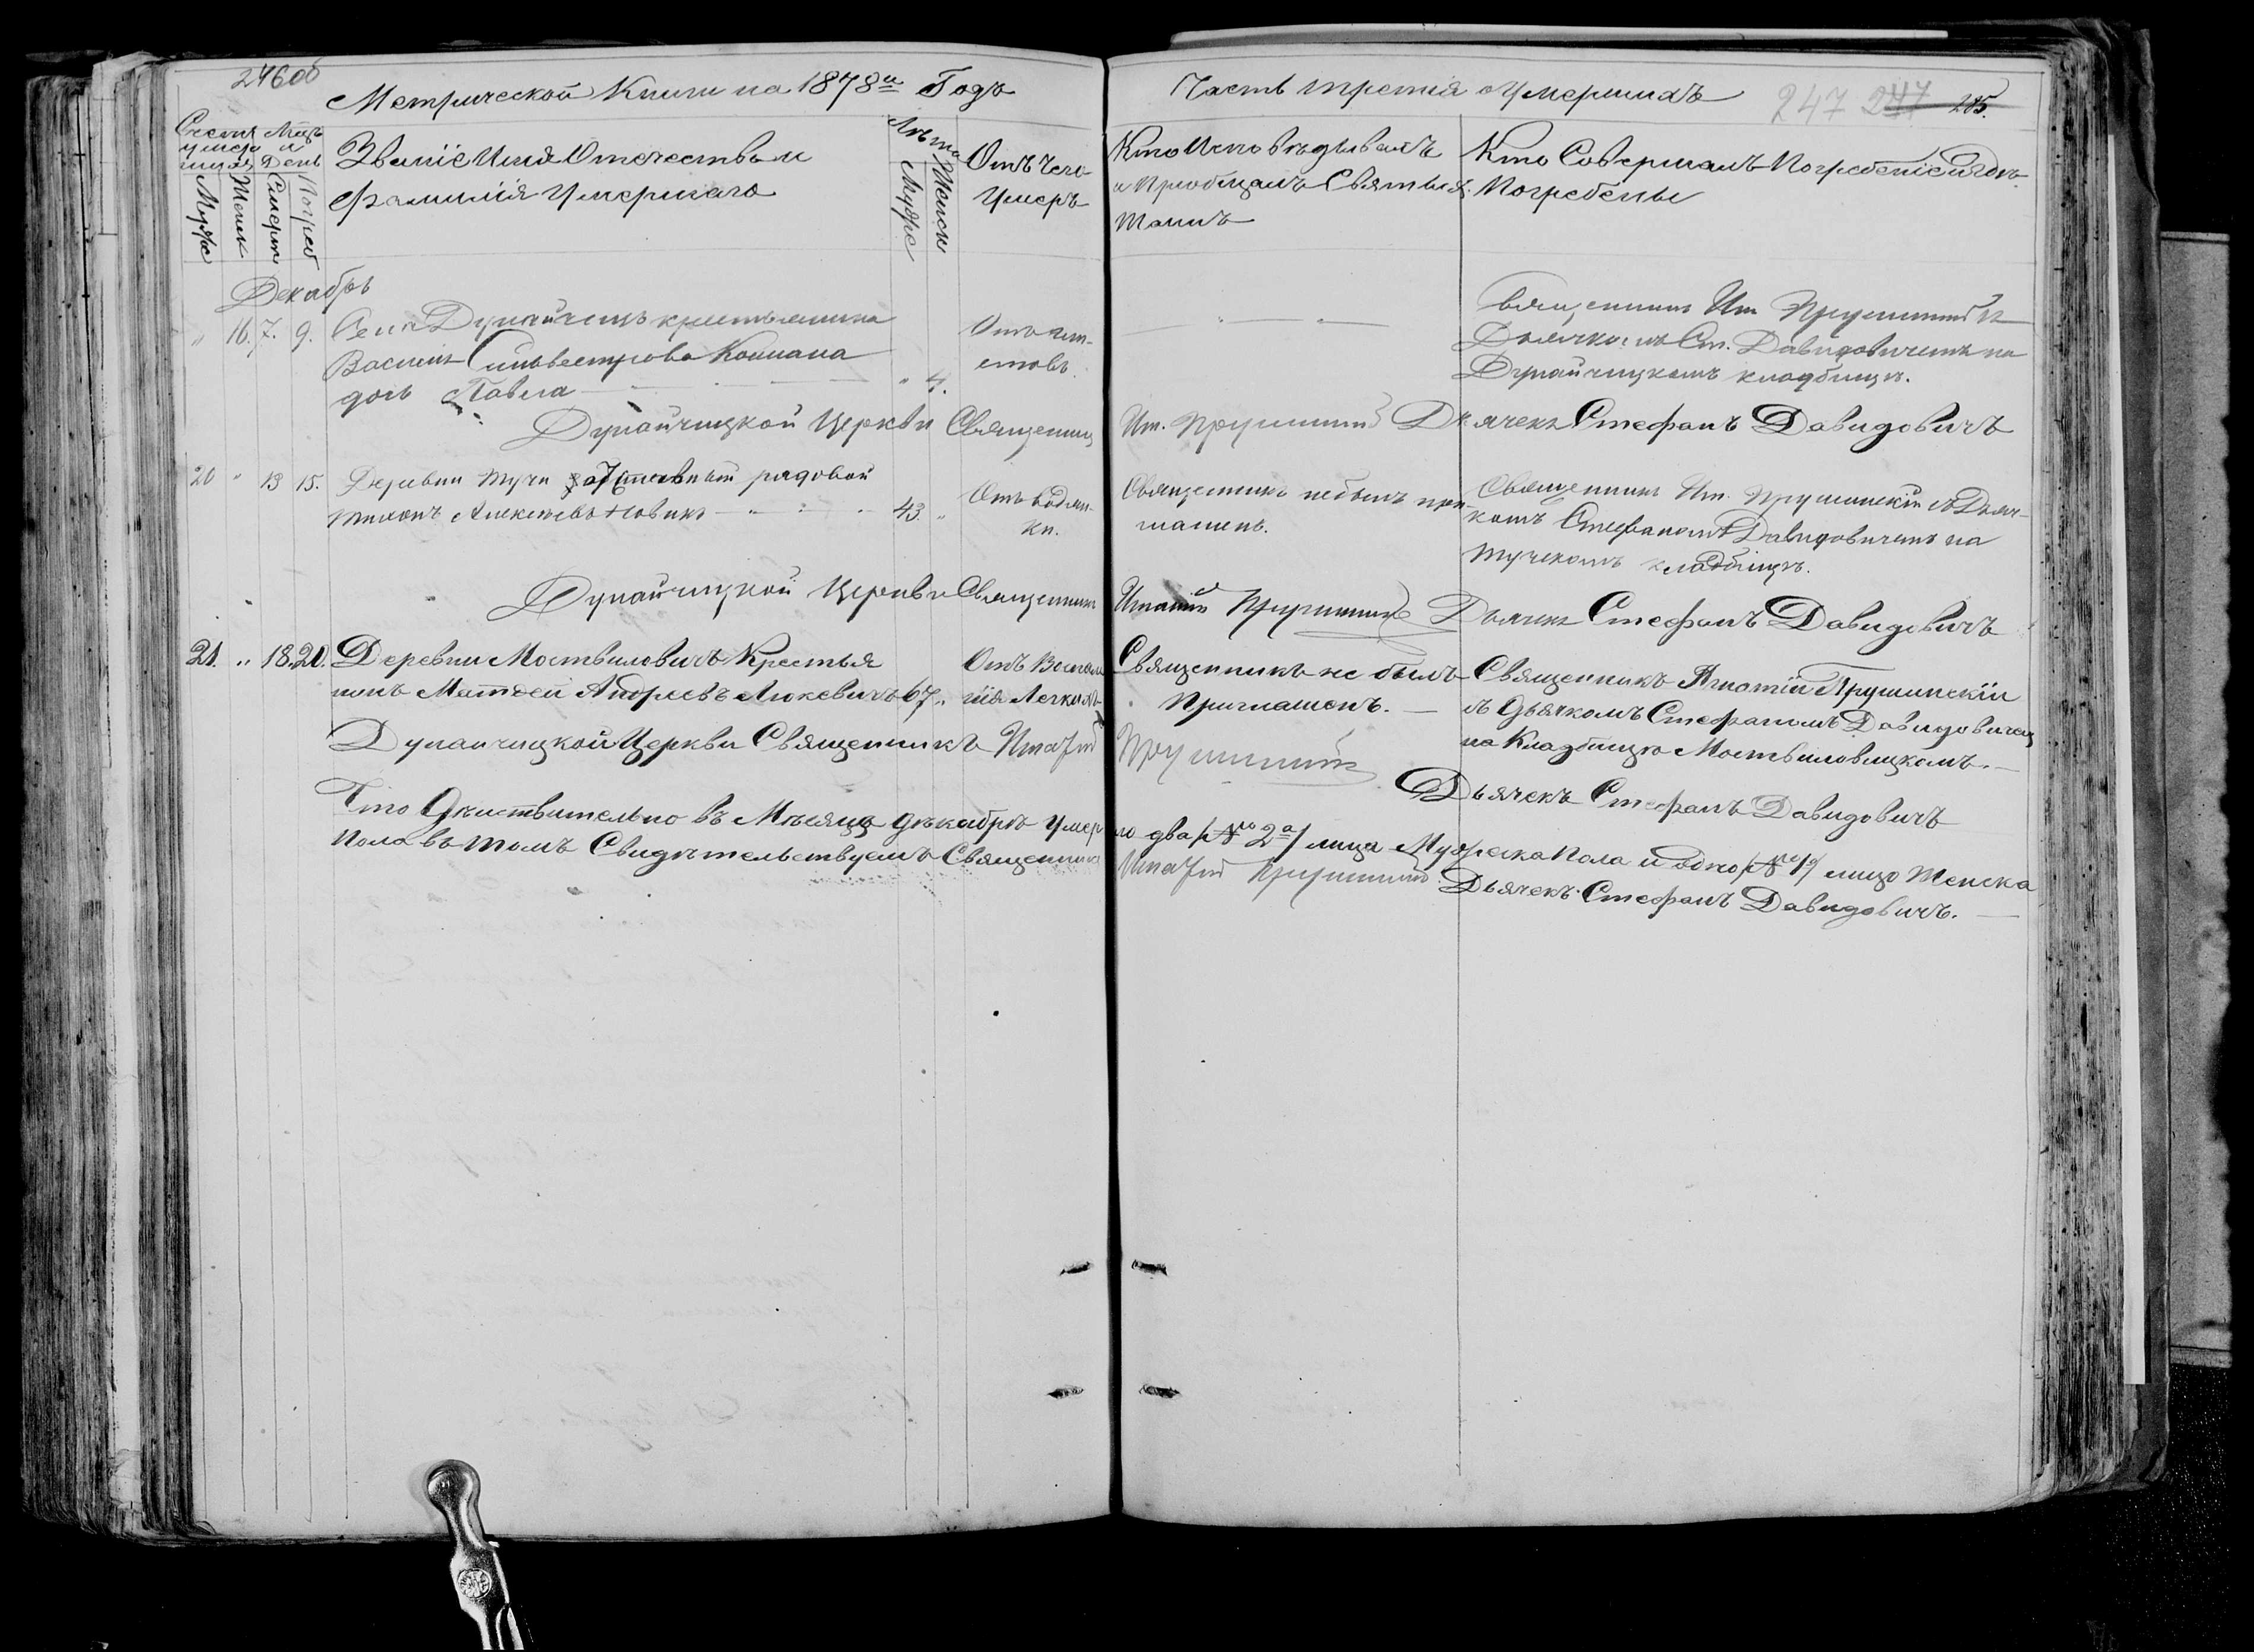 246об
Метрической Книги на 1878й Годъ
Часть третія о Умершихъ
247 247 285.
Счетъ умершихъ
Муж
Женск
Мѣць и День
Смерти
Погреб
Званіе Имя Отечество и
Фамилія Умершаго
Лѣта
Мужс
Женск
Отъ чего
Умеръ
Кто Исповѣдывалъ
и Пріобщалъ Святыхъ
Таинъ
Кто Совершалъ Погребеніе и гдѣ
Погребены
Декабрь
" 16. 7. 9. Села Дунайчицъ крестьянина
Василія Сильвестрова
дочь Павла
" 4.
Священникъ Иг. Прушинскій съ
Дьячкомъ Ст. Давидовичемъ на
Дунайчицкомъ кладбищѣ.
Дунайчицкой Церкви Священникъ Иг. Прушинскій Дьячекъ Стефанъ Давидовичъ
20 " 13 15. Деревни Тучи рядовой
Алексѣевъ Новикъ 43. "
Отъ водян-
ки.
Священникъ небылъ при-
глашенъ.
Священникъ Иг. Прушинскій съ Дьяч-
комъ Стефаномъ Давидовичемъ на
Тучскомъ кладбищѣ.
Дунайчицкой Церкви Священникъ Игнатій Прушинскій Дьячекъ Стефанъ Давидовичъ
21. " 18. 20. Деревни Мостьиловичъ Крестья
нинъ Матѳей Андреевъ Люкевичъ 67. "
Отъ Воспале
нія Легкихъ
Священникъ не былъ
Приглашенъ. —
Священникъ Игнатій Прушинскій
съ Дьячкомъ Стефаномъ Давидовичемъ
на Кладбищѣ Мостьиловицкомъ. —
Дунайчицкой Церкви Священникъ Игнатій Прушинскій
Дьячекъ Стефанъ Давидовичъ
Что Дѣйствительно въ Мѣсяцѣ декабрѣ Умерло два /№ 2а/ лица Мужеска Пола и одно /№ 1/ лицо Женска
Пола въ томъ Свидѣтельствуемъ Священникъ Игнатій Прушинскій Дьячекъ Стефанъ Давидовичъ. —